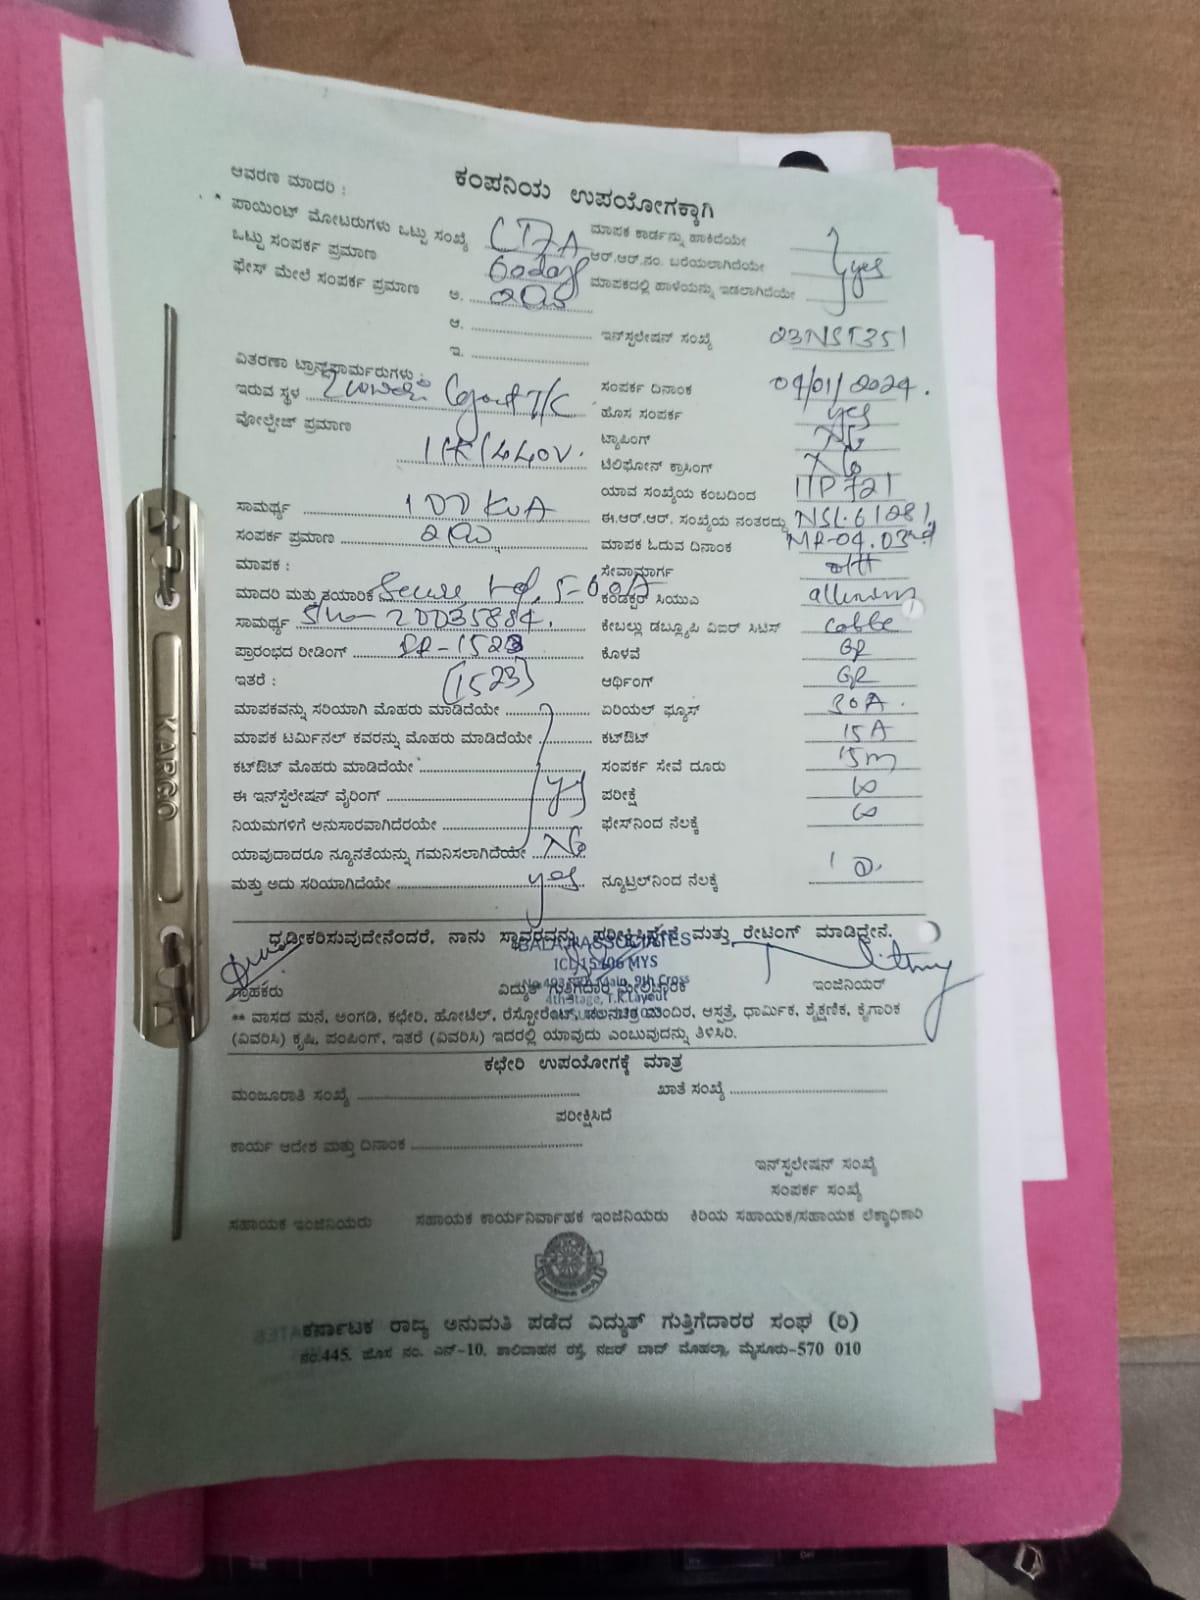 ಕಂಪನಿಯ ಉಪಯೋಗಕ್ಕಾಗಿ
ಆವರಣ ಮಾದರಿ :
ಪಾಯಿಂಟ್ ಮೋಟರುಗಳು ಒಟ್ಟು ಸಂಖ್ಯೆ
ಮಾಪಕ ಕಾರ್ಡನ್ನು ಹಾಕಿದೆಯೇ
ಒಟ್ಟು ಸಂಪರ್ಕ ಪ್ರಮಾಣ 60days
ಆರ್.ಆರ್.ನಂ. ಬರೆಯಲಾಗಿದೆಯೇ yes
ಫೇಸ್ ಮೇಲೆ ಸಂಪರ್ಕ ಪ್ರಮಾಣ ಅ.
ಮಾಪಕದಲ್ಲಿ ಹಾಳೆಯನ್ನು ಇಡಲಾಗಿದೆಯೇ
ಆ.
ಇನ್‌ಸ್ಟಲೇಷನ್ ಸಂಖ್ಯೆ 23NST351
ಇ.
ವಿತರಣಾ ಟ್ರಾನ್ಸ್‌ಫಾರ್ಮರುಗಳು :
ಸಂಪರ್ಕ ದಿನಾಂಕ 04/01/2024.
ಇರುವ ಸ್ಥಳ Layout T/C
ಹೊಸ ಸಂಪರ್ಕ yes
ವೋಲ್ಟೇಜ್ ಪ್ರಮಾಣ 11K/440V.
ಟ್ಯಾಪಿಂಗ್ No
ಟೆಲಿಫೋನ್ ಕ್ರಾಸಿಂಗ್ No
ಯಾವ ಸಂಖ್ಯೆಯ ಕಂಬದಿಂದ 11P721
ಸಾಮರ್ಥ್ಯ 100 KVA
ಈ.ಆರ್.ಆರ್. ಸಂಖ್ಯೆಯ ನಂತರದ್ದು NSL61281,
ಸಂಪರ್ಕ ಪ್ರಮಾಣ
ಮಾಪಕ ಓದುವ ದಿನಾಂಕ MR-04.
ಮಾಪಕ :
ಸೇವಾಮಾರ್ಗ
ಮಾದರಿ ಮತ್ತು ತಯಾರಿಕೆ Secure
ಕಂಡಕ್ಟರ್ ಸಿಯುಎ
ಸಾಮರ್ಥ್ಯ S/no- 20035884.
ಕೇಬಲ್ಲು ಡಬ್ಲ್ಯೂಪಿ ವಿಐರ್ ಸಿಟಿಸ್ cable
ಪ್ರಾರಂಭದ ರೀಡಿಂಗ್ 1523
ಕೊಳವೆ GP
ಇತರೆ : (1523)
ಆರ್ಥಿಂಗ್ GP
ಮಾಪಕವನ್ನು ಸರಿಯಾಗಿ ಮೊಹರು ಮಾಡಿದೆಯೇ
ಏರಿಯಲ್ ಫ್ಯೂಸ್ 30A.
ಮಾಪಕ ಟರ್ಮಿನಲ್ ಕವರನ್ನು ಮೊಹರು ಮಾಡಿದೆಯೇ
ಕಟ್‌ಔಟ್ 15A
ಕಟ್‌ಔಟ್ ಮೊಹರು ಮಾಡಿದೆಯೇ
ಸಂಪರ್ಕ ಸೇವೆ ದೂರು 15m
ಈ ಇನ್‌ಸ್ಟಲೇಷನ್ ವೈರಿಂಗ್ yes
ಪರೀಕ್ಷೆ
ನಿಯಮಗಳಿಗೆ ಅನುಸಾರವಾಗಿದೆರಯೇ
ಫೇಸ್‌ನಿಂದ ನೆಲಕ್ಕೆ
ಯಾವುದಾದರೂ ನ್ಯೂನತೆಯನ್ನು ಗಮನಿಸಲಾಗಿದೆಯೇ No
ಮತ್ತು ಅದು ಸರಿಯಾಗಿದೆಯೇ yes
ನ್ಯೂಟ್ರಲ್‌ನಿಂದ ನೆಲಕ್ಕೆ
ಧೃಡೀಕರಿಸುವುದೇನೆಂದರೆ, ನಾನು ಸ್ಥಾವರವನ್ನು ಪರೀಕ್ಷಿಸಿದ್ದೇನೆ ಮತ್ತು ರೇಟಿಂಗ್ ಮಾಡಿದ್ದೇನೆ.
BALAJI ASSOCIATES
ICL 15406 MYS
9th Cross
4th Stage, T.K.Layout
ಗ್ರಾಹಕರು ವಿದ್ಯುತ್ ಗುತ್ತಿಗೆದಾರ ಮೇಲ್ವಿಚಾರಕ ಇಂಜಿನಿಯರ್
** ವಾಸದ ಮನೆ, ಅಂಗಡಿ, ಕಛೇರಿ, ಹೋಟೆಲ್, ರೆಸ್ಟೋರೆಂಟ್, ಚಲನಚಿತ್ರ ಮಂದಿರ, ಆಸ್ಪತ್ರೆ, ಧಾರ್ಮಿಕ, ಶೈಕ್ಷಣಿಕ, ಕೈಗಾರಿಕ
(ವಿವರಿಸಿ) ಕೃಷಿ, ಪಂಪಿಂಗ್, ಇತರೆ (ವಿವರಿಸಿ) ಇದರಲ್ಲಿ ಯಾವುದು ಎಂಬುವುದನ್ನು ತಿಳಿಸಿರಿ.
ಕಛೇರಿ ಉಪಯೋಗಕ್ಕೆ ಮಾತ್ರ
ಮಂಜೂರಾತಿ ಸಂಖ್ಯೆ ಖಾತೆ ಸಂಖ್ಯೆ
ಪರೀಕ್ಷಿಸಿದೆ
ಕಾರ್ಯ ಆದೇಶ ಮತ್ತು ದಿನಾಂಕ
ಇನ್‌ಸ್ಟಲೇಷನ್ ಸಂಖ್ಯೆ
ಸಂಪರ್ಕ ಸಂಖ್ಯೆ
ಸಹಾಯಕ ಇಂಜಿನಿಯರು ಸಹಾಯಕ ಕಾರ್ಯನಿರ್ವಾಹಕ ಇಂಜಿನಿಯರು ಕಿರಿಯ ಸಹಾಯಕ/ಸಹಾಯಕ ಲೆಕ್ಕಾಧಿಕಾರಿ
ಕರ್ನಾಟಕ ರಾಜ್ಯ ಅನುಮತಿ ಪಡೆದ ವಿದ್ಯುತ್ ಗುತ್ತಿಗೆದಾರರ ಸಂಘ (ರಿ)
ನಂ.445, ಹೊಸ ನಂ. ಎನ್-10, ಶಾಲಿವಾಹನ ರಸ್ತೆ, ನಜರ್ ಬಾದ್ ಮೊಹಲ್ಲಾ, ಮೈಸೂರು-570 010
KARGO